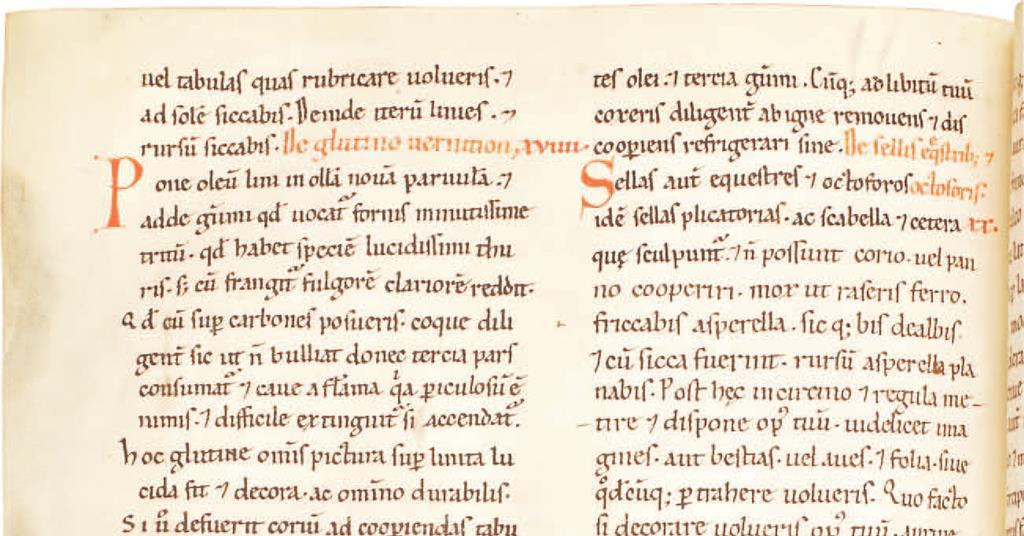 uel tabulas quas rubricare uolueris. ⁊
ad solē siccabis. Deinde iterū linies. ⁊
rursū siccabis. De glutino uernition, xviiii.
Pone oleū lini in ollā nouā paruulā. ⁊
adde gūmi qd̄ uocat᷑ fornis minutissime
tritū. qd̄ habet speciē lucidissimi thu
ris. s; cū frangit᷑ fulgorē clariorē reddit.
Qd̄ cū sup̱ carbones posueris. coque dili
gent̄ sic ut n̄ bulliat donec tercia pars
consumat᷑ ⁊ caue a flāma q̄a ꝑiculosū ē
nimis. ⁊ difficile extinguit᷑ si accendat᷑.
hoc glutine om̄is pictura sup̱ linita lu
cida fit ⁊ decora. ac om̄ino durabilis.
Si ū defuerit coriū ad cooperiendas tabu
tes olei. ⁊ tercia gūmi. Cūq; ad libitū tuū
coxeris diligent̄ ab igne remouens ⁊ dis
cooperiens refrigerari sine. De sellis eq̄strib; ⁊
Sellas aut̄ equestres ⁊ octoforos octoforis.
idē sellas plicatorias. ac scabella ⁊ cetera xx.
quę sculpunt᷑. ⁊ n̄ possunt corio. uel pan
no cooperiri. mox ut raseris ferro.
friccabis asperella. sic q; bis dealbis.
⁊ cū sicca fuerint. rursū asperella pla
nabis. Post hęc in circino ⁊ regula me
tire ⁊ dispone op᷒ tuū. uidelicet ima
gines. aut bestias. uel aues. ⁊ folia. siue
q̊dcūq; ꝑtrahere uolueris. Quo facto
si decorare uolueris op᷒ tuū.